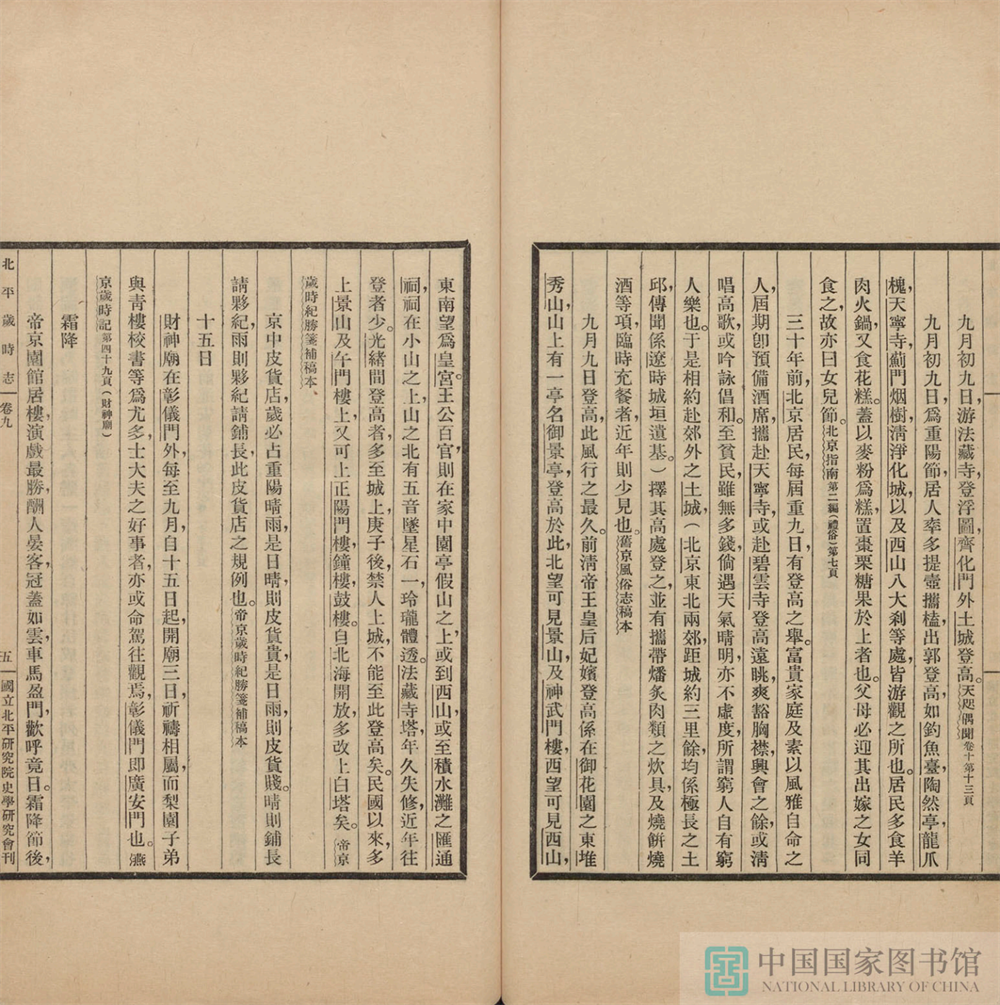 九月初九日，游法藏寺，登浮圖，齊化門外土城登高。天咫偶聞卷十第十三頁
九月初九日，爲重陽節，居人率多提壺攜榼，出郭登高，如釣魚臺，陶然亭，龍爪
槐，天寧寺，薊門烟樹，清淨化城，以及西山八大刹等處，皆游觀之所也。居民多食羊
肉火鍋，又食花糕。蓋以麥粉爲糕，置棗栗糖果於上者也。父母必迎其出嫁之女同
食之，故亦曰女兒節。北京指南第二編（禮俗）第七頁
三十年前，北京居民，每屆重九日，有登高之舉。富貴家庭，及素以風雅自命之
人，屆期卽預備酒席，攜赴天寧寺，或赴碧雲寺，登高遠眺，爽豁胸襟，興會之餘，或清
唱高歌，或吟詠倡和。至貧民雖無多錢，倘遇天氣晴明，亦不虛度，所謂窮人自有窮
人樂也。于是相約赴郊外之土城，（北京東北兩郊，距城約三里餘，均係極長之土
邱，傳聞係遼時城垣遺基。）擇其高處登之，並有攜帶燔炙肉類之炊具，及燒餅燒
酒等項，臨時充餐者，近年則少見也。舊京風俗志稿本
九月九日登高，此風行之最久。前清帝王皇后妃嬪登高，係在御花園之東堆
秀山，山上有一亭，名御景亭，登高於此，北望可見景山，及神武門樓，西望可見西山，
東南望爲皇宮，王公百官，則在家中園亭假山之上，或到西山，或至積水灘之匯通
祠，祠在小山之上，山之北有五音墜星石，一玲瓏體透，法藏寺塔，年久失修，近年往
登者少。光緒間登高者，多至城上，庚子後，禁人上城，不能至此登高矣。民國以來，多
上景山及午門樓上，又可上正陽門樓，鐘樓，鼓樓。自北海開放，多改上白塔矣。帝京
歲時紀勝箋補稿本
京中皮貨店，歲必占重陽晴雨，是日晴，則皮貨貴，是日雨，則皮貨賤。晴則鋪長
請夥紀，雨則夥紀請鋪長，此皮貨店之規例也。帝京歲時紀勝箋補稿本
十五日
財神廟在彰儀門外，每至九月，自十五日起，開廟三日，祈禱相屬，而梨園子弟
與青樓校書等爲尤多，士大夫之好事者，亦或命駕往觀焉，彰儀門，即廣安門也。燕
京歲時記第四十九頁（財神廟）
霜降
帝京園館居樓，演戲最勝，酬人宴客，冠蓋如雲，車馬盈門，歡呼竟日。霜降節後，
北平歲時志 卷九 五 國立北平研究院史學研究會刊
中国国家图书馆
NATIONAL LIBRARY OF CHINA